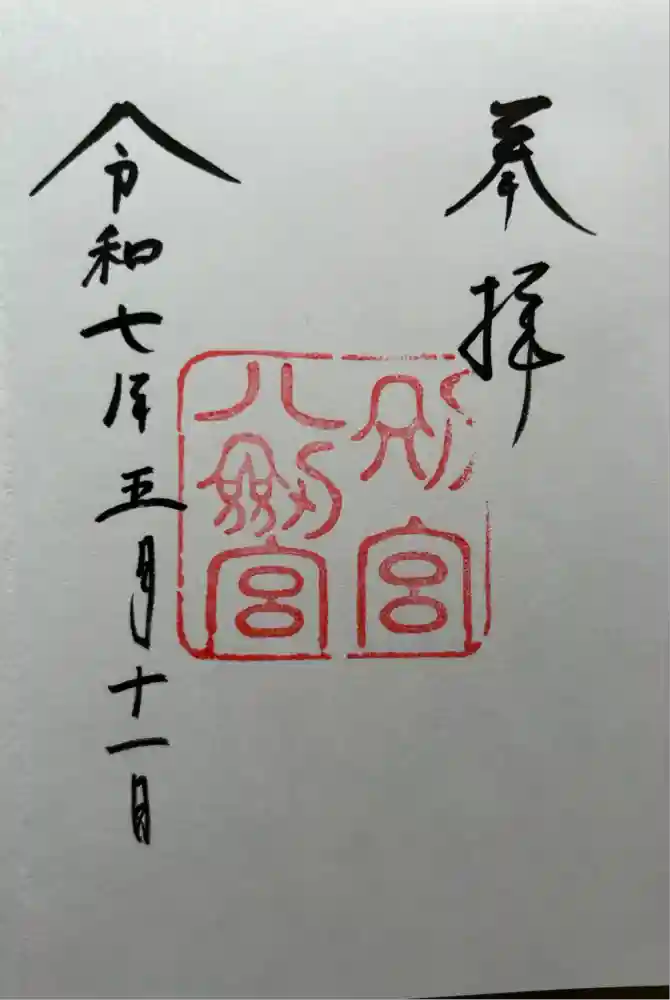 奉拝
別宮
八劍宮
令和七年五月十一日